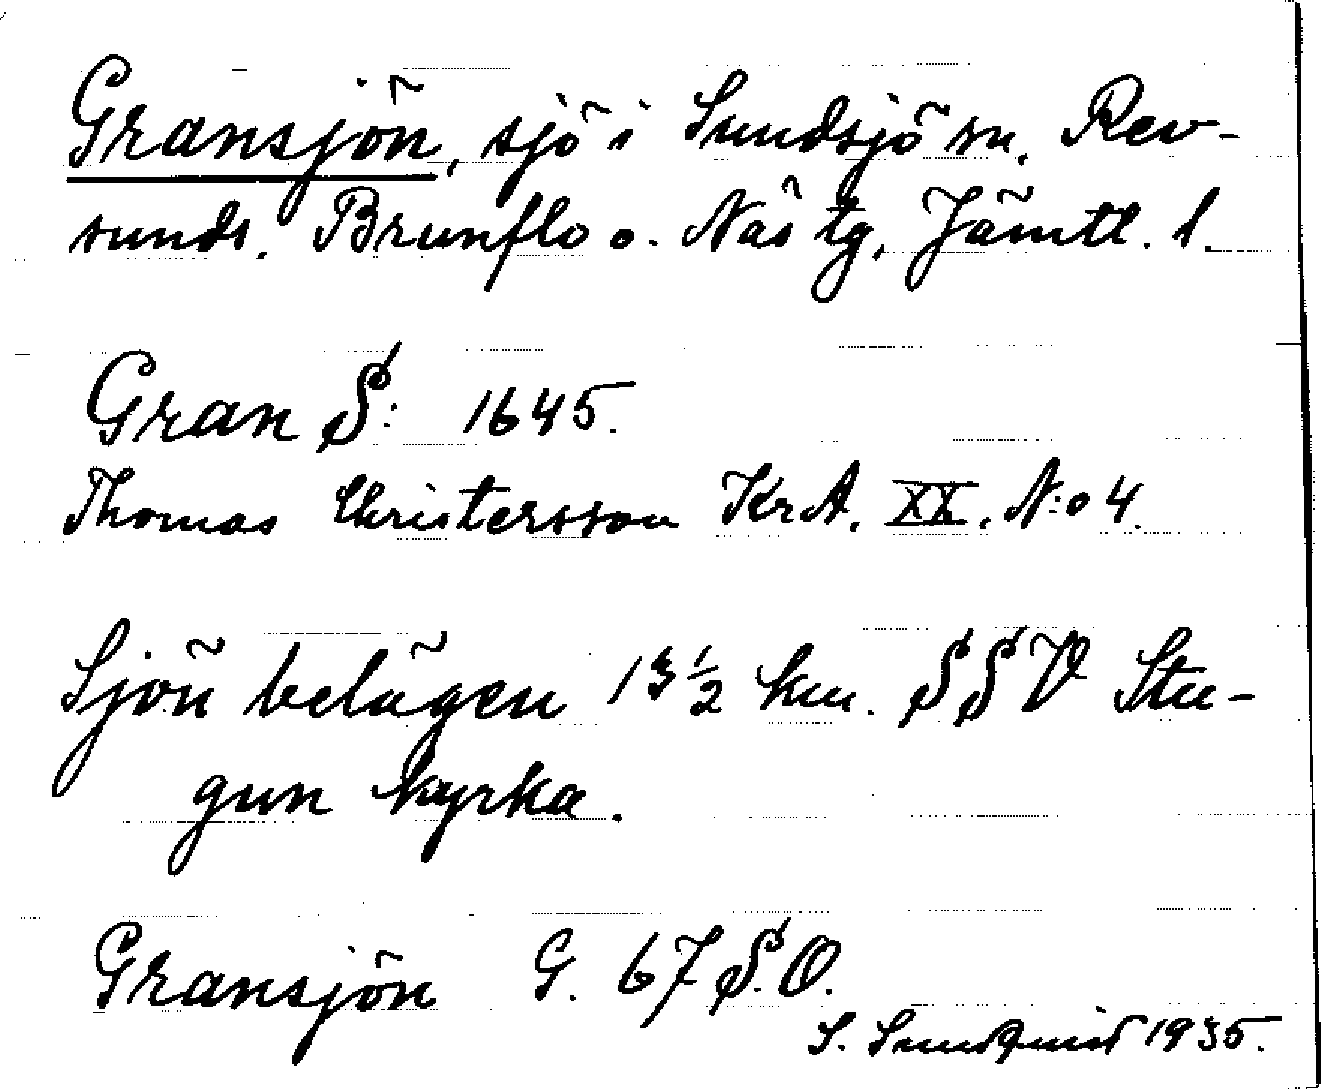 Gransjön, sjö i Sundsjö sn. Rev-
sunds. Brunflo o. Näs tg, Jämtl. l.
Gran S: 1645.
Thomas Christersson KrA. XX. N:o 4.
Sjön belägen 13 1/2 km. SSV Stu-
gun kyrka.
Gransjön G. 67 S.O.
S. Sundquist 1935.